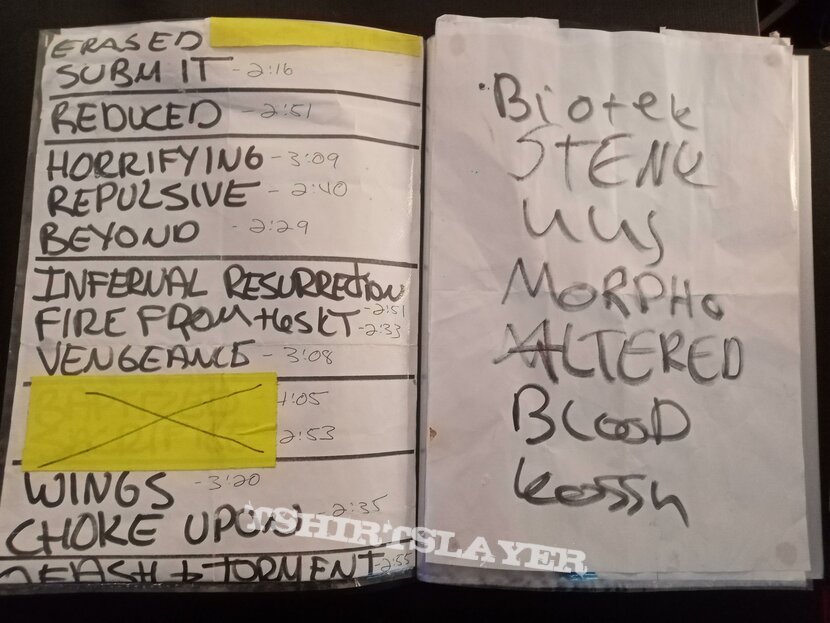 ERASED
SUBMIT - 2:16
REDUCED - 2:51
HORRIFYING - 3:09
REPULSIVE - 2:40
BEYOND - 2:29
INFERNAL RESURRECTION - 2:51
FIRE FROM the SKY - 2:33
VENGEANCE - 3:08
4:05
2:53
WINGS - 3:20
CHOKE UPON - 2:35
TORMENT - 2:55
Biotek
STENC
UUS
MORPHO
ALTERED
BLOOD
TSHIRTSLAYER